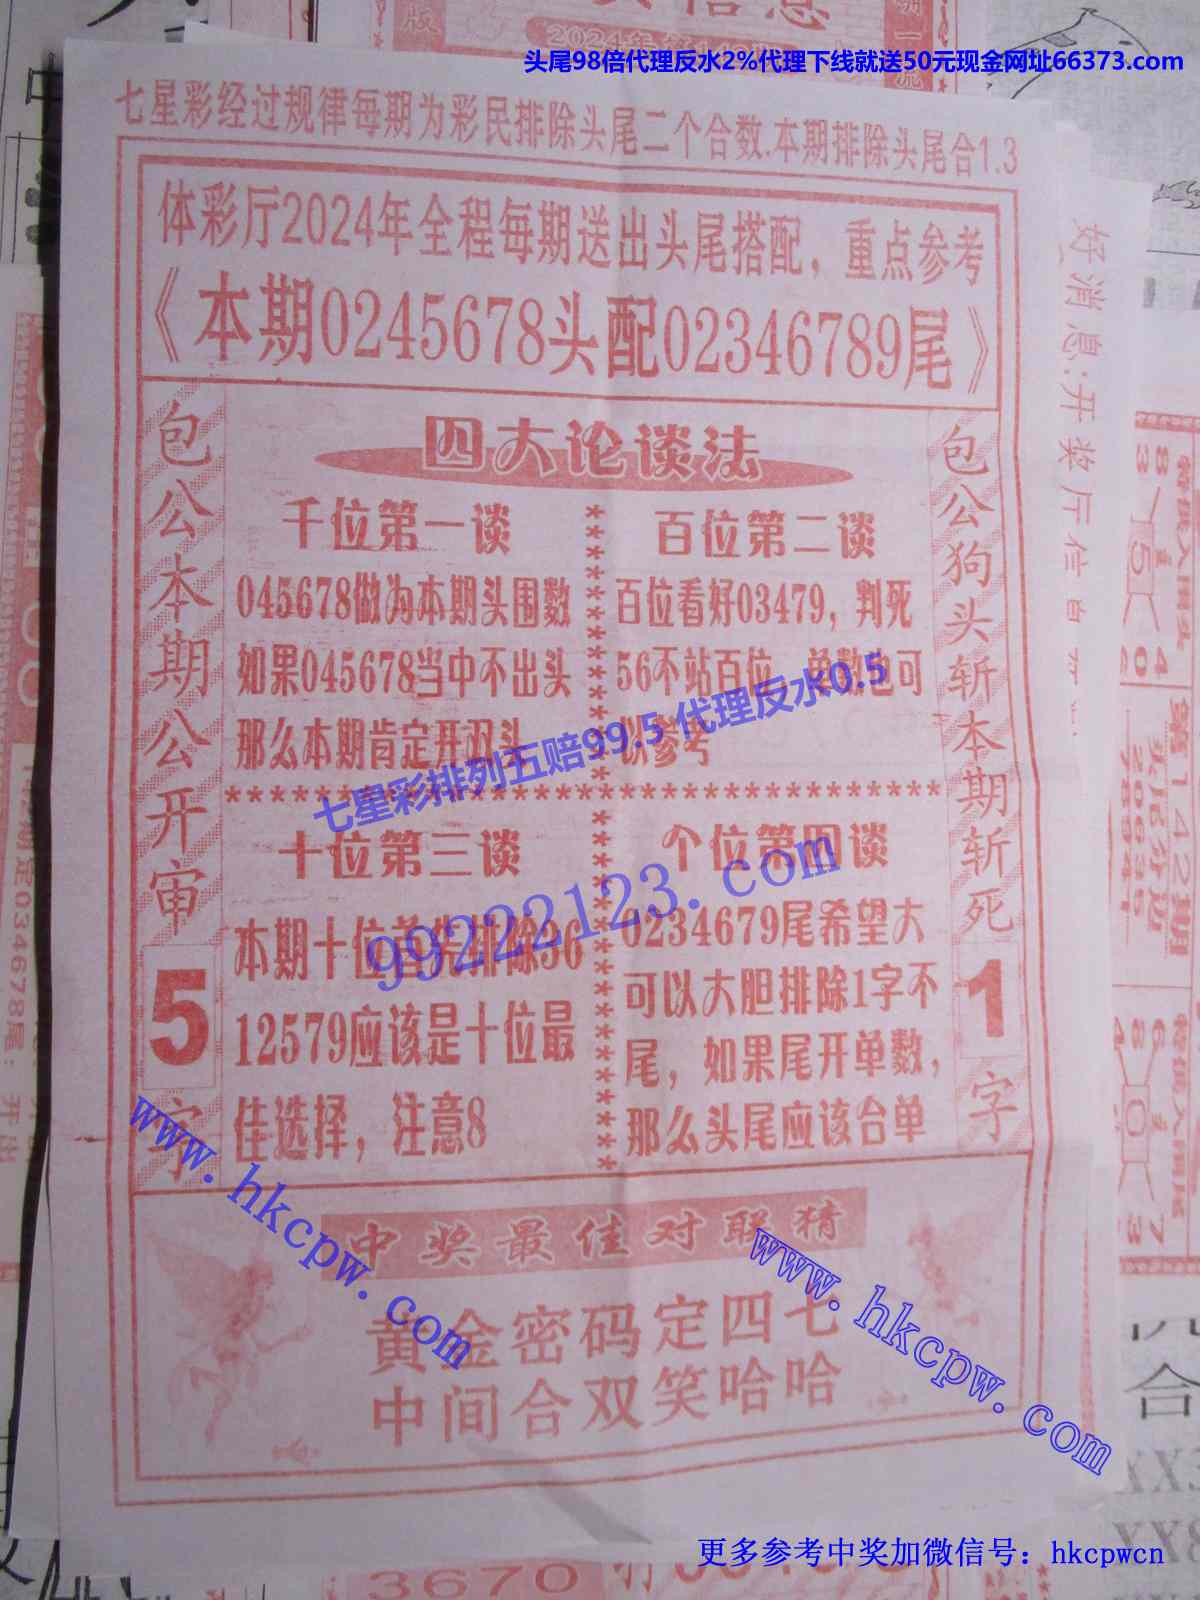 头尾98倍代理反水2%代理下线就送50元现金网址66373.com
七星彩经过规律每期为彩民排除头尾二个合数.本期排除头尾合1.3
体彩厅2024年全程每期送出头尾搭配，重点参考
《本期0245678头配02346789尾》
包公本期公开审5字
四大论谈法
千位第一谈
045678做为本期头围数
如果045678当中不出头
那么本期肯定开双头
百位第二谈
百位看好03479，判死
56不站百位，单数也可
以参考
十位第三谈
本期十位首先排除36
12579应该是十位最
佳选择，注意8
个位第四谈
0234679尾希望大
可以大胆排除1字不
尾，如果尾开单数，
那么头尾应该合单
包公狗头斩本期斩死1字
中奖最佳对联猜
黄金密码定四七
中间合双笑哈哈
七星彩排列五赔99.5 代理反水0.5
99222123.com
www.hkcpw.com
www.hkcpw.com
更多参考中奖加微信号：hkcpwcn
好消息:开奖厅信息
第142期
3670